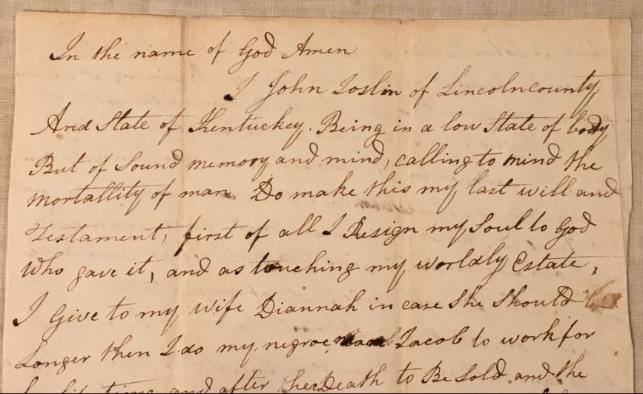 In the name of God Amen
I John Joslin of Lincoln county
And State of Kentuckey. Being in a low State of body
But of Sound memory and mind, calling to mind the
mortallity of man Do make this my last will and
Testament, first of all I Resign my Soul to God
who gave it, and as touching my worldly Estate,
I Give to my wife Diannah in case She Should
Longer then I do my negroe Jacob to work for
life time and after her Death to Be Sold and the